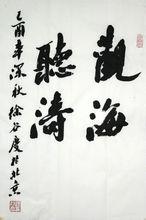 觀海
聽濤
乙酉年深秋徐谷慶於北京